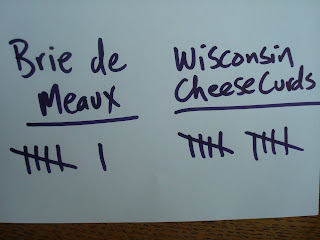 Brie de
Meaux
Wisconsin
Cheese Curds